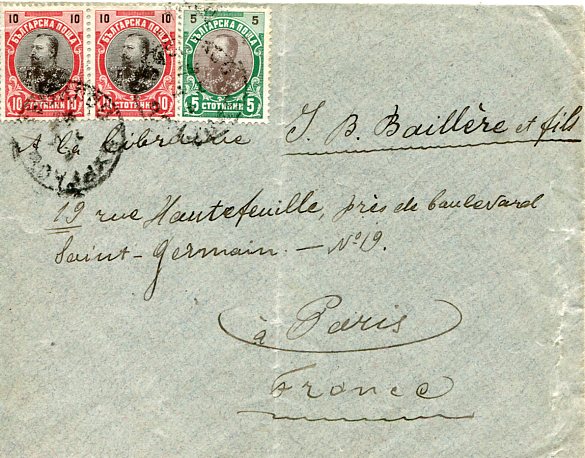 10 10 10 10 5 5
БЪЛГАРСКА ПОЩА БЪЛГАРСКА ПОЩА БЪЛГАРСКА ПОЩА
10 10 10 10 5 5
СТОТИНКИ СТОТИНКИ СТОТИНКИ
à la librairie J. B. Baillère et fils
19 rue Hautefeuille, près de boulevard
Saint-Germain. — No 19.
à Paris
France